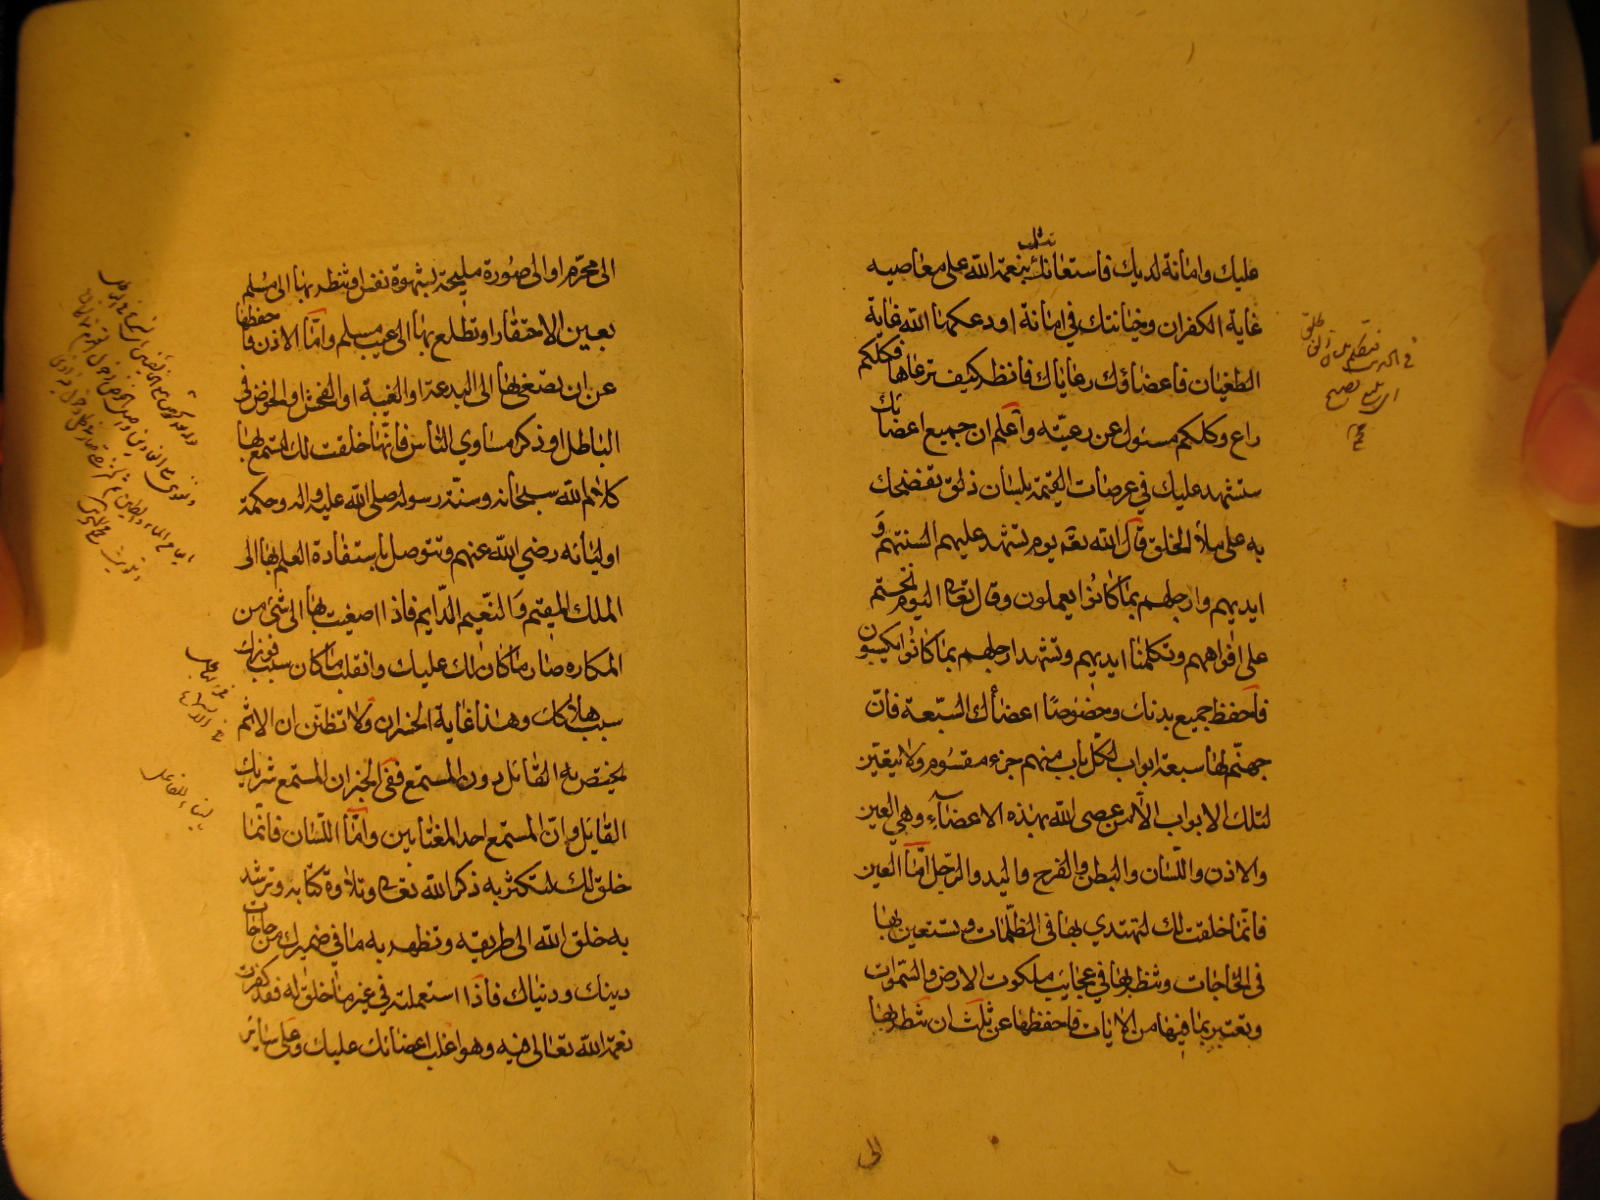 عليك وامانة لديك فاستعانتك بنعمة الله على معاصيه
غاية الكفران وخيانتك في امانة اودعكها الله غاية
الطغيان فاعضاؤك رعاياك فانظر كيف ترعاها فكلكم
راع وكلكم مسئول عن رعيته واعلم ان جميع اعضائك
ستشهد عليك في عرصات القيمة بلسان ذلق تفضحك
به على ملأ الخلق قال الله تعه يوم تشهد عليهم السنتهم و
ايديهم وارجلهم بما كانوا يعملون وقال تعالى اليوم نختم
على افواههم وتكلمنا ايديهم وتشهد ارجلهم بما كانوا يكسبون
فاحفظ جميع بدنك وخصوصا اعضاك السبعة فان
جهنم لها سبعة ابواب لكل باب منهم جزء مقسوم ولا يتعين
لتلك الابواب الا من عصى الله بهذه الاعضاء وهي العين
والاذن واللسان والبطن والفرج واليد والرجل اما العين
فانما خلقت لك لتهتدي بها في الظلمات وتستعين بها
في الحاجات وتنظر بها في عجايب ملكوت الارض والسموات
وتعتبر بما فيها من الايات فاحفظها عن ثلث ان تنظر بها
الى
الى محرم او الى صورة مليحة بشهوة نفس او تنظر بها الى مسلم
بعين الاحتقار او تطلع بها الى عيب مسلم واما الاذن فاحفظها
عن ان تصغى بها الى البدعة او الغيبة او الفحش او الخوض في
الباطل او ذكر مساوي الناس فانها خلقت لك لتستمع بها
كلام الله سبحانه وسنة رسوله صلى الله عليه واله وحكمة
اوليائه رضي الله عنهم وتتوصل باستفادة العلم بها الى
الملك المقيم والنعيم الدايم فاذا اصغيت بها الى شئ من
المكاره صار ما كان لك عليك وانقلب ما كان سبب فوزك
سبب هلاكك وهذا غاية الخسران ولا تظنن ان الاثم
يختص به القائل دون المستمع ففي الخبر ان المستمع شريك
القائل وان المستمع احد المغتابين واما اللسان فانما
خلق لك لتكثر به ذكر الله تعالى وتلاوة كتابه وترشد
به خلق الله الى طريقه وتظهر به ما في ضميرك من حاجات
دينك ودنياك فاذا استعملته في غير ما خلق له فقد كفرت
نعمة الله تعالى فيه وهو اغلب اعضائك عليك وعلى سائر